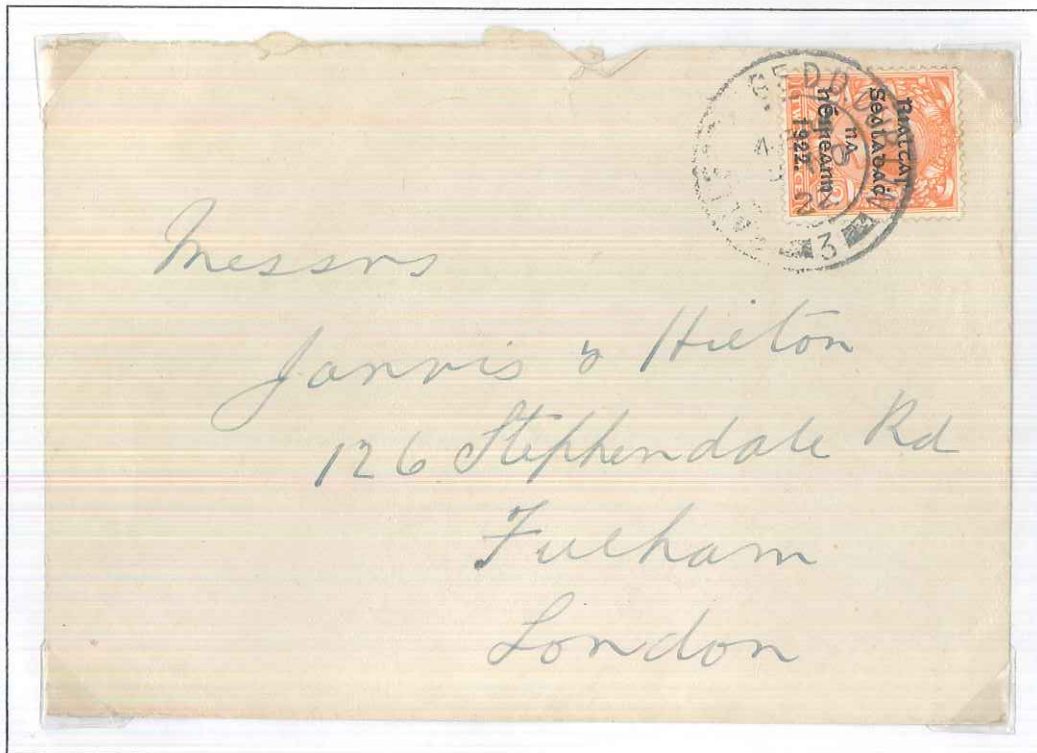 Rialtar
Sealadaċ
na
hÉireann
1922.
3
Messrs
Jarvis & Hilton
126 Stephendale Rd
Fulham
London